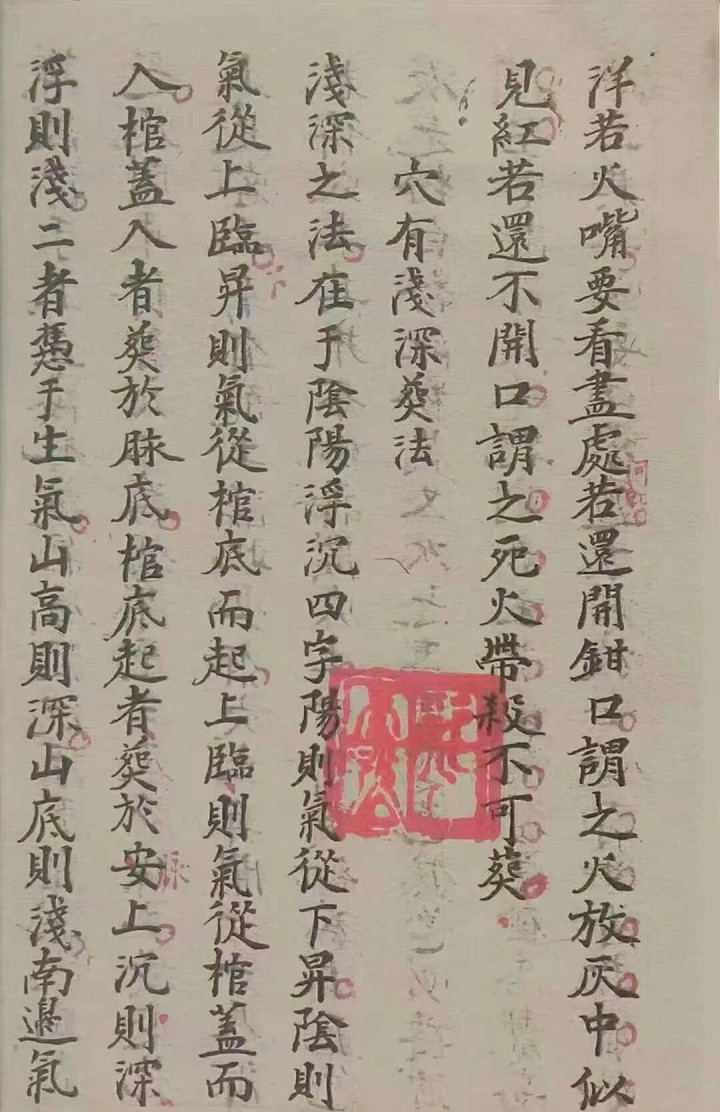 洋若火嘴要看盡處若還開鉗口謂之火放灰中似
見紅若還不開口謂之死火帶殺不可葬
穴有淺深葬法
淺深之法在于陰陽浮沉四字陽則氣從下昇陰則
氣從上臨昇則氣從棺底而起上臨則氣從棺蓋而
入棺蓋入者葬於脉底棺底起者葬於安上沉則深
浮則淺二者憑于生氣山高則深山底則淺南邊氣
脉